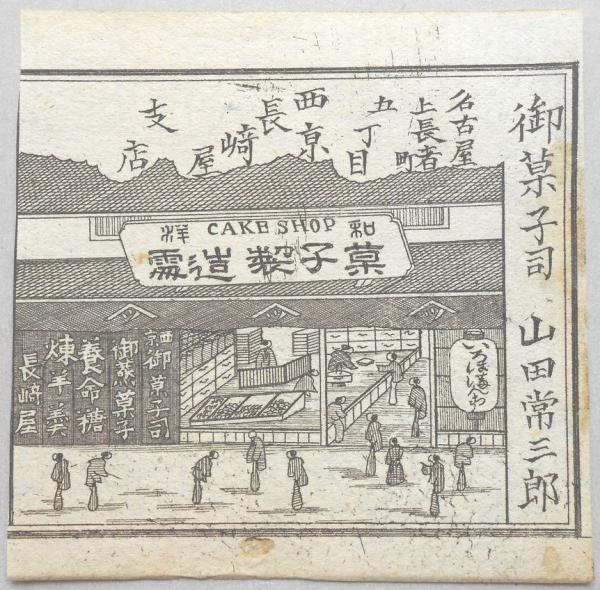 御菓子司 山田常三郎
名古屋
上長者町
五丁目
西京
長﨑屋
支店
和 CAKE SHOP 洋
菓子製造處
西京御菓子司
御蒸菓子
養命糖
煉羊羹
長﨑屋